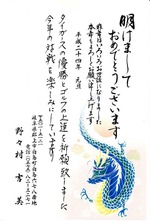 明けまして
おめでとうございます
昨年はいろいろお世話になりました
本年もよろしくお願い申し上げます
平成二十四年 元旦
タイガースの優勝とゴルフの上達を祈願致しました
今年の対戦を楽しみにしています
野々村 吉美